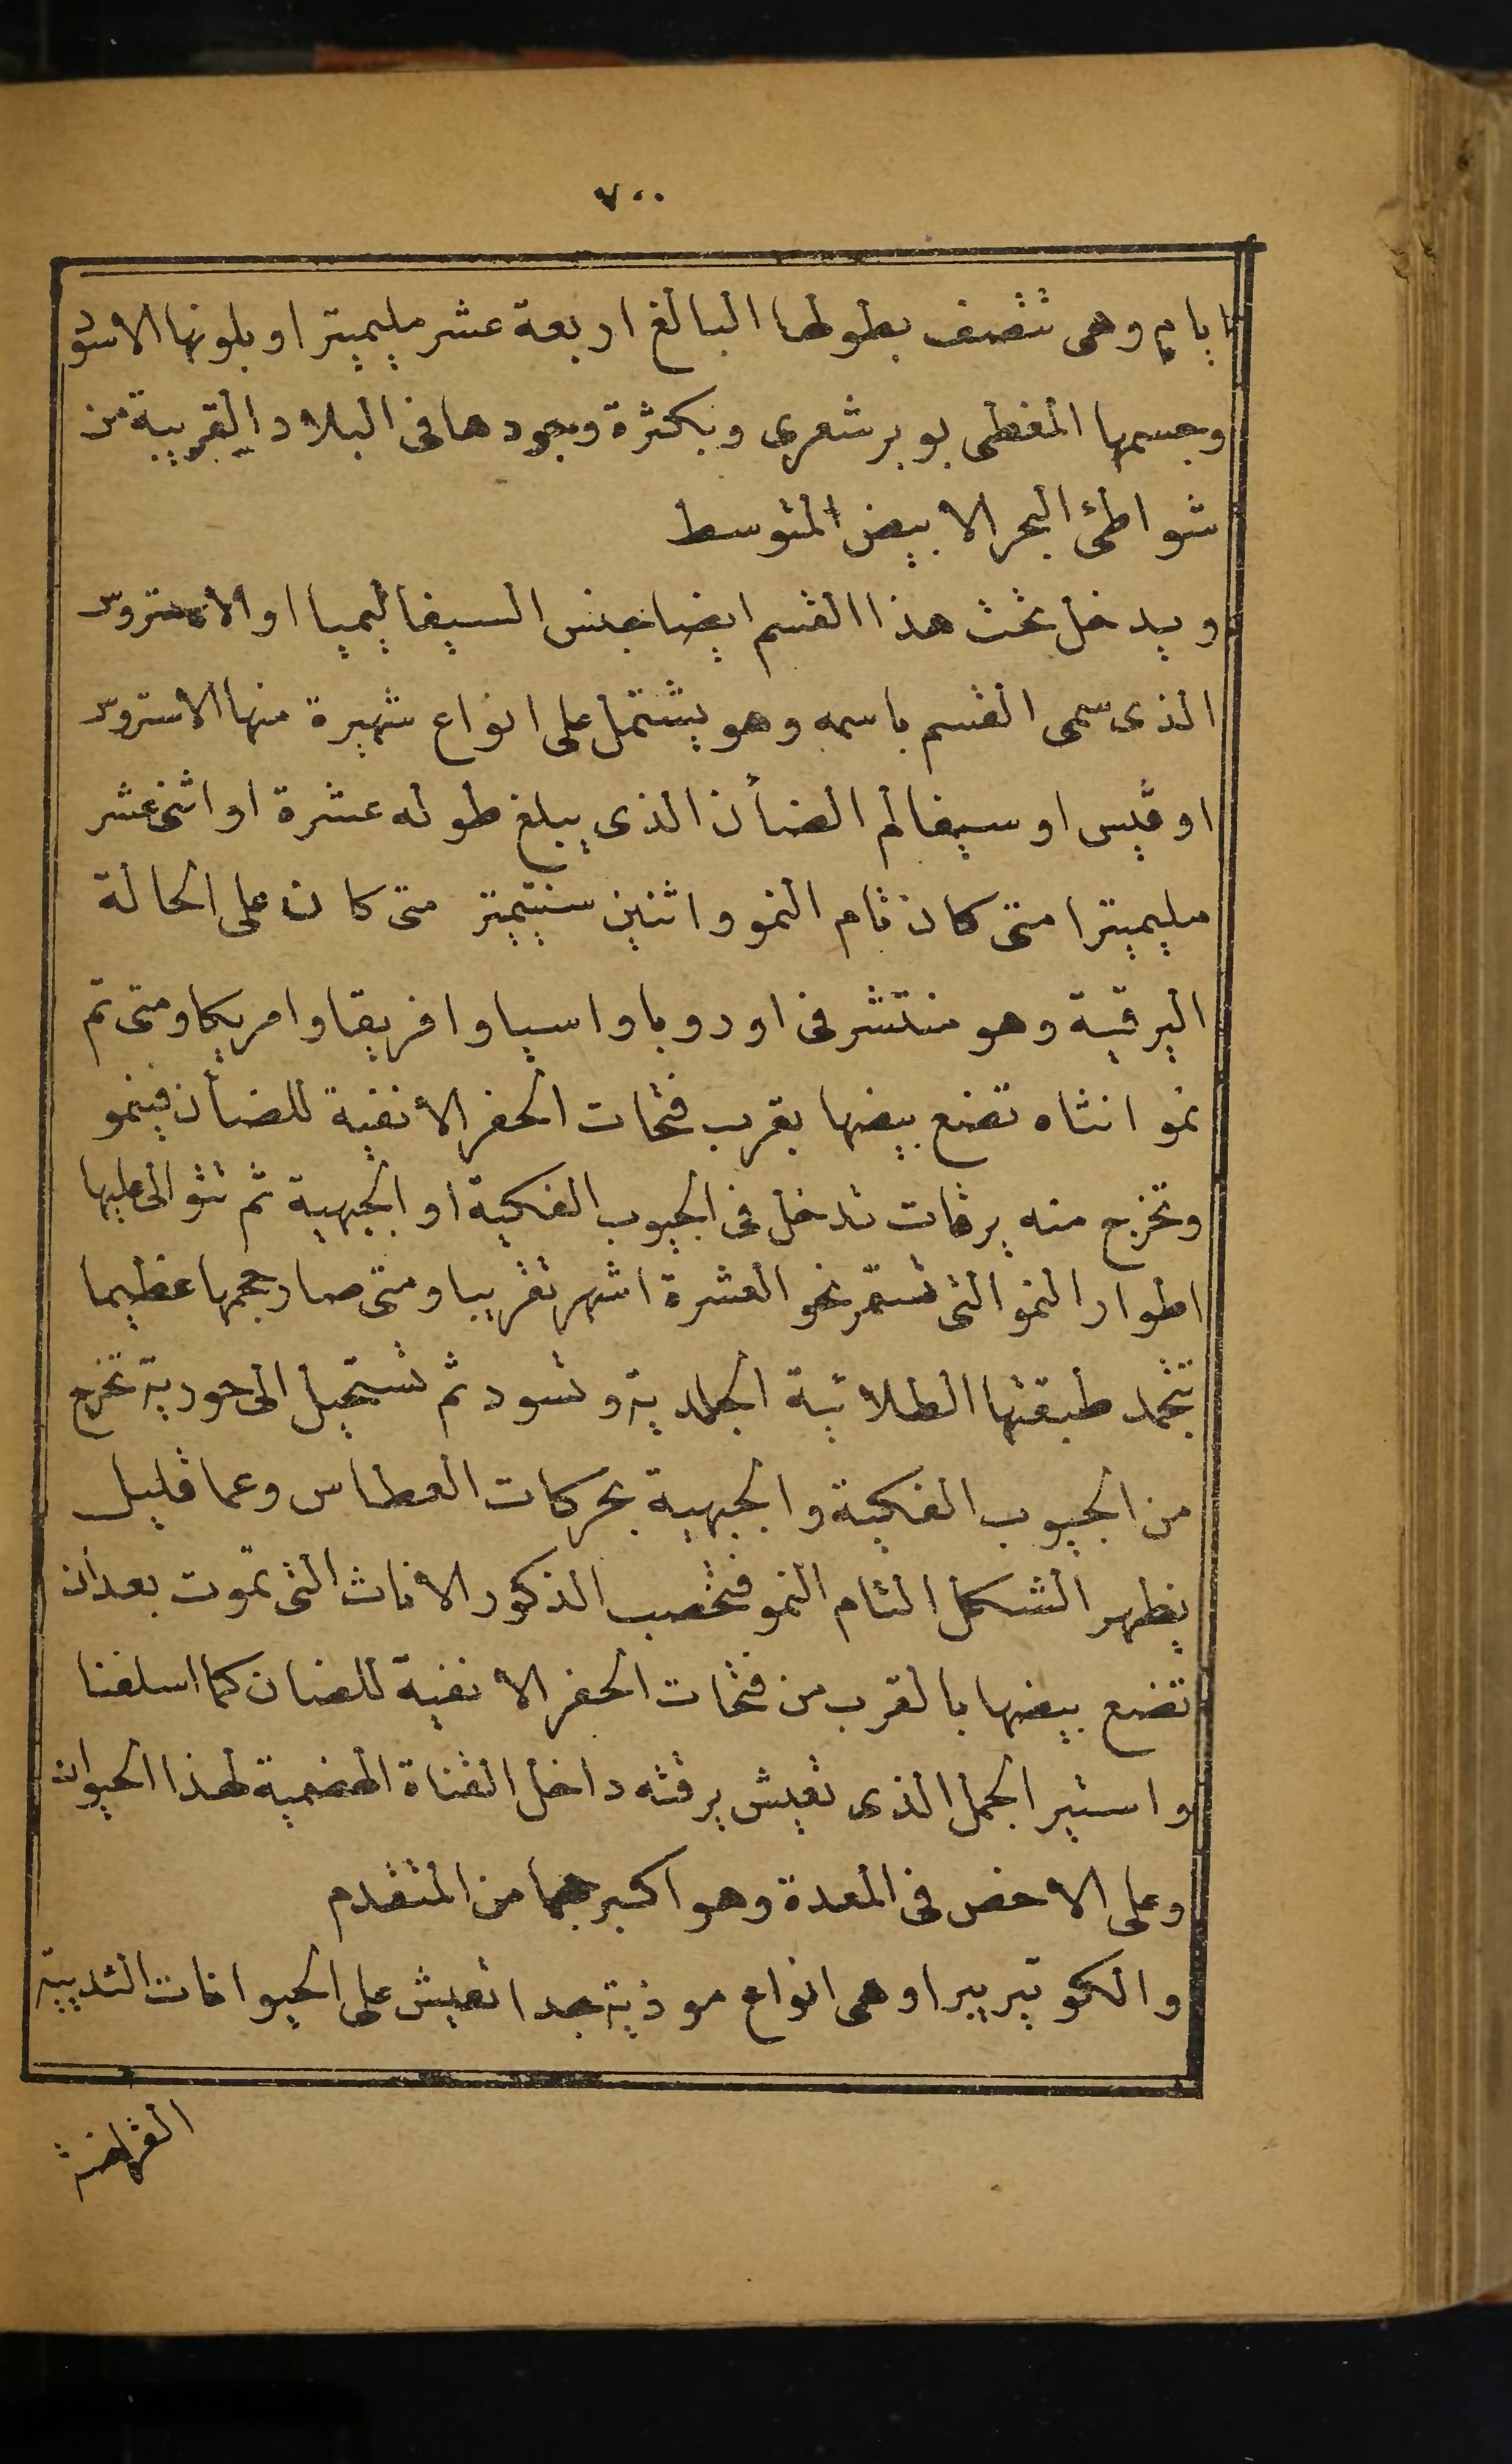 ٧٠٠
ايام وهى تتصف بطولها البالغ اربعة عشر مليميترا وبلونها الاسود
وجسمها المغطى بوبر شعرى وبكثرة وجودها فى البلاد القريبة من
شواطئ البحر الابيض المتوسط
ويدخل تحت هذا القسم ايضا جنس السيفاليميا او الاستروس
الذى سمى القسم باسمه وهو يشتمل على انواع شهيرة منها الاستروس
اوڤيس او سيفالم الضأن الذى يبلغ طوله عشرة او اثنى عشر
مليميترا متى كان تام النمو واثنين سنتيميتر متى كان على الحالة
اليرقية وهو منتشر فى اوروبا واسيا وافريقا وامريكا ومتى تم
نمو انثاه تضع بيضها بقرب فتحات الحفر الأنفية للضأن فينمو
وتخرج منه يرقات تدخل فى الجيوب الفكية او الجبهية ثم تتوالى عليها
اطوار النمو التى تستمر نحو العشرة اشهر تقريبا ومتى صار حجمها عظيما
تتجمد طبقتها الطلائية الجلدية وتسود ثم تستحيل الى حورية تخرج
من الجيوب الفكية والجبهية بحركات العطاس وعما قليل
يظهر الشكل التام النمو فتخصب الذكور الاناث التى تموت بعد ان
تضع بيضها بالقرب من فتحات الحفر الانفية للضان كما اسلفنا
واستير الجمل الذى تعيش يرقته داخل القناة الهضمية لهذا الحيوان
وعلى الاخص فى المعدة وهو اكبر حجما من المتقدم
والكوتيريبرا وهى انواع موذية جدا تعيش على الحيوانات الثديية
القراضة